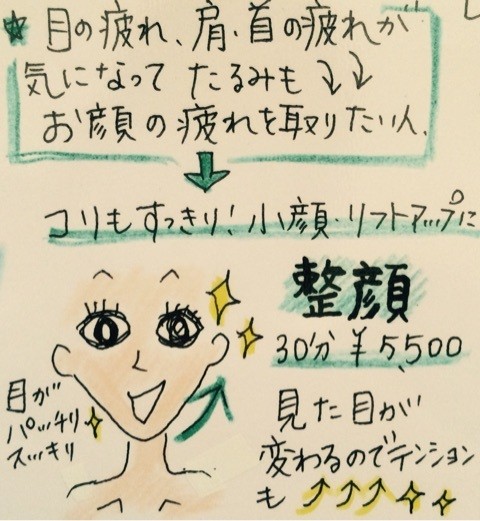 ★ 目の疲れ、肩・首の疲れが
気になって たるみも ↓↓
お顔の疲れを取りたい人、
コリもすっきり!小顔・リフトアップに
整顔
30分 ¥5,500
目が
パッチリ
スッキリ
見た目が
変わるのでテンション
も ↑↑↑